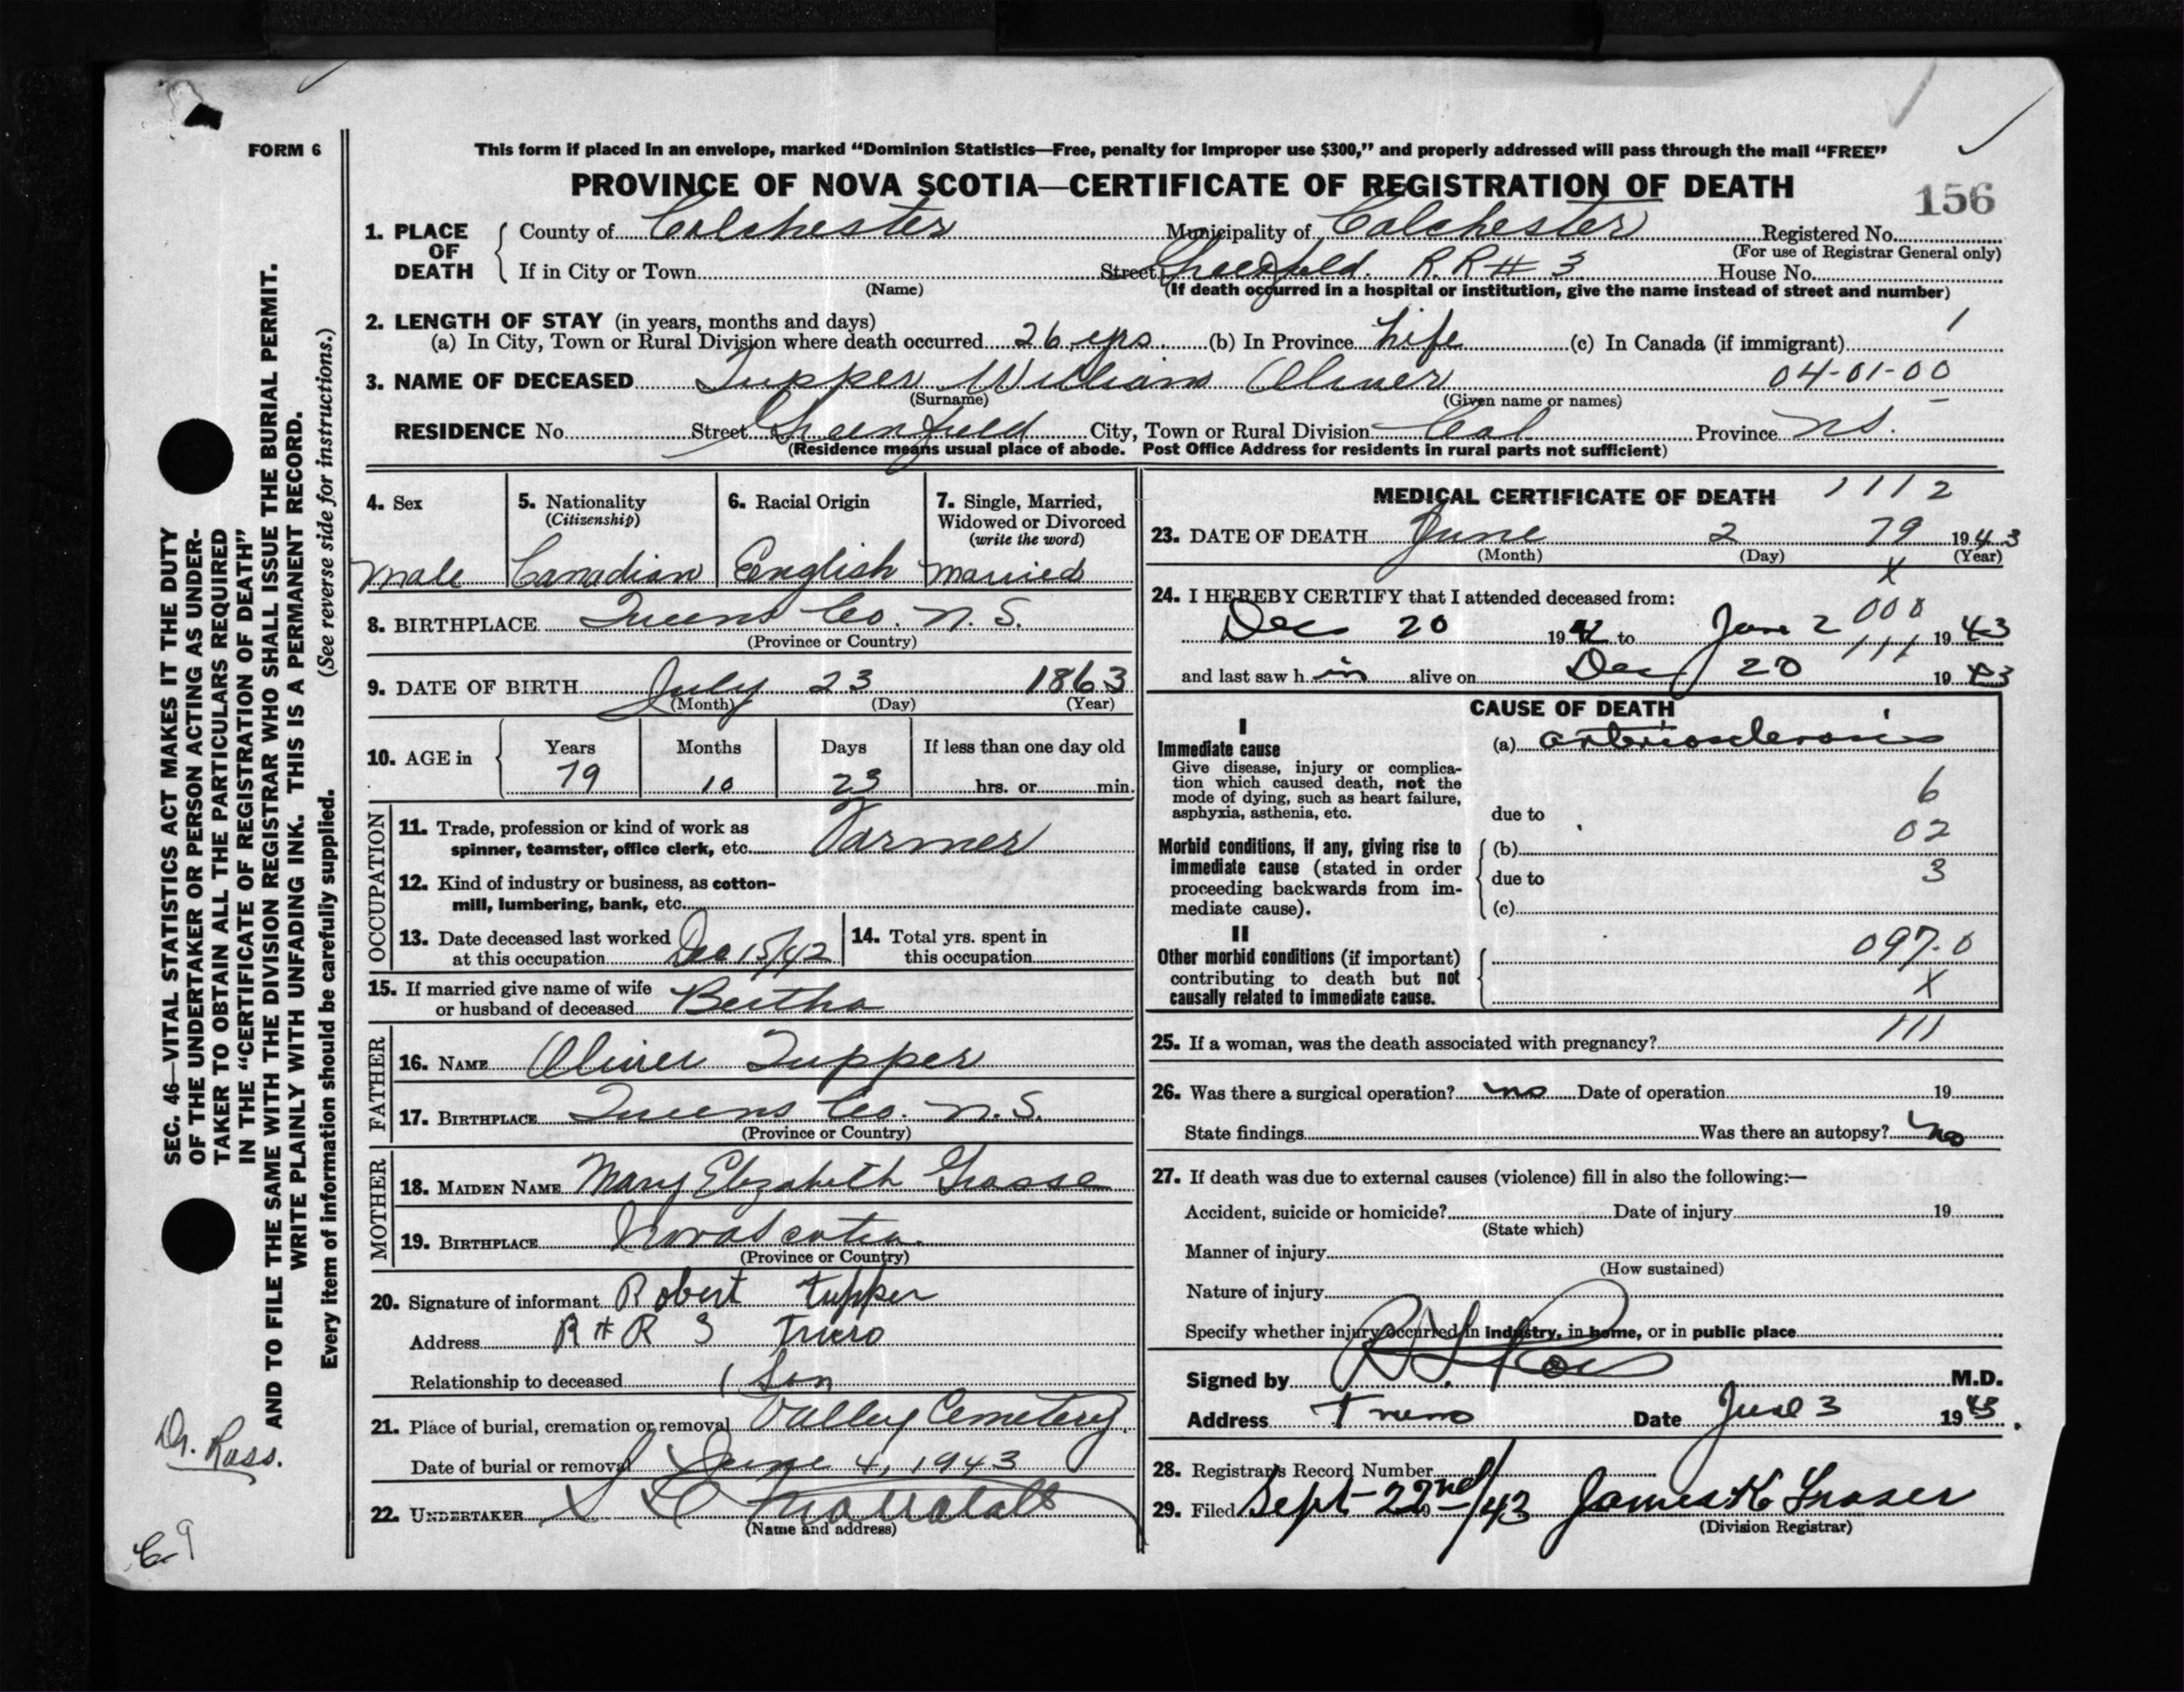 FORM 6
This form if placed in an envelope, marked “Dominion Statistics—Free, penalty for improper use $300,” and properly addressed will pass through the mail “FREE”
PROVINCE OF NOVA SCOTIA—CERTIFICATE OF REGISTRATION OF DEATH
156
1. PLACE OF DEATH { County of Colchester Municipality of Colchester Registered No.
(For use of Registrar General only)
If in City or Town Street Greenfield. R.R # 3 House No.
(Name) (If death occurred in a hospital or institution, give the name instead of street and number)
2. LENGTH OF STAY (in years, months and days)
(a) In City, Town or Rural Division where death occurred 26 yrs. (b) In Province Life (c) In Canada (if immigrant)
3. NAME OF DECEASED Tupper William Oliver 04-01-00
(Surname) (Given name or names)
RESIDENCE No. Street Greenfield City, Town or Rural Division Col Province N.S.
(Residence means usual place of abode. Post Office Address for residents in rural parts not sufficient)
4. Sex Male
5. Nationality (Citizenship) Canadian
6. Racial Origin English
7. Single, Married, Widowed or Divorced (write the word) Married
8. BIRTHPLACE Queens Co. N.S.
(Province or Country)
9. DATE OF BIRTH July 23 1863
(Month) (Day) (Year)
10. AGE in { Years Months Days If less than one day old
79 10 23 hrs. or min.
OCCUPATION
11. Trade, profession or kind of work as
spinner, teamster, office clerk, etc. Farmer
12. Kind of industry or business, as cotton-
mill, lumbering, bank, etc.
13. Date deceased last worked
at this occupation Dec 15/42
14. Total yrs. spent in
this occupation
15. If married give name of wife
or husband of deceased Bertha
FATHER
16. NAME Oliver Tupper
17. BIRTHPLACE Queens Co. N.S.
(Province or Country)
MOTHER
18. MAIDEN NAME Mary Elizabeth
19. BIRTHPLACE Nova Scotia.
(Province or Country)
20. Signature of informant Robert Tupper
Address R # R 3 Truro
Relationship to deceased Son
21. Place of burial, cremation or removal Valley Cemetery
Date of burial or removal June 4, 1943
22. UNDERTAKER
(Name and address)
MEDICAL CERTIFICATE OF DEATH 1112
23. DATE OF DEATH June 2 79 1943
(Month) (Day) (Year)
X
24. I HEREBY CERTIFY that I attended deceased from:
000
Dec 20 1942 to June 2 1943
111
and last saw h im alive on Dec 20 19
CAUSE OF DEATH
I
Immediate cause (a) arteriosclerosis
Give disease, injury or complica-
tion which caused death, not the
mode of dying, such as heart failure,
asphyxia, asthenia, etc. due to
6
02
3
Morbid conditions, if any, giving rise to
immediate cause (stated in order
proceeding backwards from im-
mediate cause).
(b)
due to
(c)
II
Other morbid conditions (if important)
contributing to death but not
causally related to immediate cause.
097.0
X
111
25. If a woman, was the death associated with pregnancy?
26. Was there a surgical operation? no Date of operation 19
State findings Was there an autopsy? No
27. If death was due to external causes (violence) fill in also the following:—
Accident, suicide or homicide? Date of injury 19
(State which)
Manner of injury
(How sustained)
Nature of injury
Specify whether injury occurred in industry, in home, or in public place
Signed by Ross M.D.
Address Truro Date June 3 1943.
28. Registrar's Record Number
29. Filed Sept 22nd/43 James K Fraser
(Division Registrar)
SEC. 46—VITAL STATISTICS ACT MAKES IT THE DUTY
OF THE UNDERTAKER OR PERSON ACTING AS UNDER-
TAKER TO OBTAIN ALL THE PARTICULARS REQUIRED
IN THE “CERTIFICATE OF REGISTRATION OF DEATH”
AND TO FILE THE SAME WITH THE DIVISION REGISTRAR WHO SHALL ISSUE THE BURIAL PERMIT.
WRITE PLAINLY WITH UNFADING INK. THIS IS A PERMANENT RECORD.
Every item of information should be carefully supplied. (See reverse side for instructions.)
Dr. Ross.